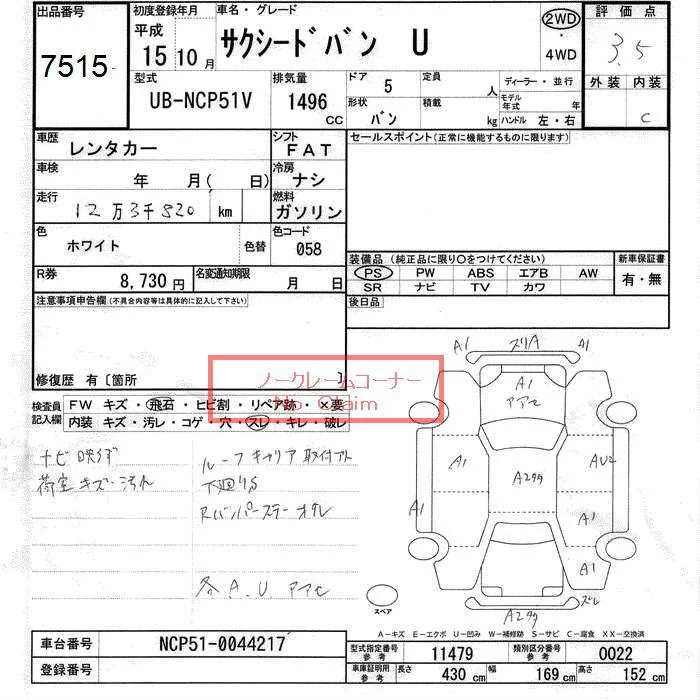 出品番号 初度登録年月 車名・グレード 評価点
7515
平成 15 10月 サクシードバン U 2WD・4WD 3.5
外装 内装
C
型式 排気量 ドア 5 定員 人 ディーラー・並行
UB-NCP51V 1496 CC 形状 バン 積載 kg モデル年式 年
ハンドル 左・右
車歴 レンタカー シフト FAT セールスポイント(正常に機能するものに限ります)
車検 年 月( 日) 冷房 ナシ
走行 12万3千820 km 燃料 ガソリン
色 ホワイト 色替 色コード 058
装備品 (純正品に限り○をつけてください) 新車保証書
PS PW ABS エアB AW 有・無
SR ナビ TV カワ
R券 8,730円 名変通知期限 月 日
注意事項申告欄(不具合内容等は具体的に記入して下さい) 後日品
修復歴 有〔箇所 〕
ノークレームコーナー
No Claim
検査員記入欄 FW キズ・飛石・ヒビ割・リペア跡 ×要
内装 キズ・汚レ・コゲ・穴・スレ・キレ・破レ
ナビ映らず
荷室キズ・汚れ
ルーフキャリア取付アト
下廻りS
Rバンパーステーオレ
各A.U アアセ
A1 スリA A1
A1
アアセ
A1 A2タタ AU2
A1 A1
A1
A2タタ ズレ
スペア
A-キズ E-エクボ U-凹み W-補修跡 S-サビ C-腐食 XX-交換済
車台番号 NCP51-0044217
登録番号
型式指定番号 参考 11479 類別区分番号 参考 0022
車庫証明用 参考 長さ 430 cm 幅 169 cm 高さ 152 cm